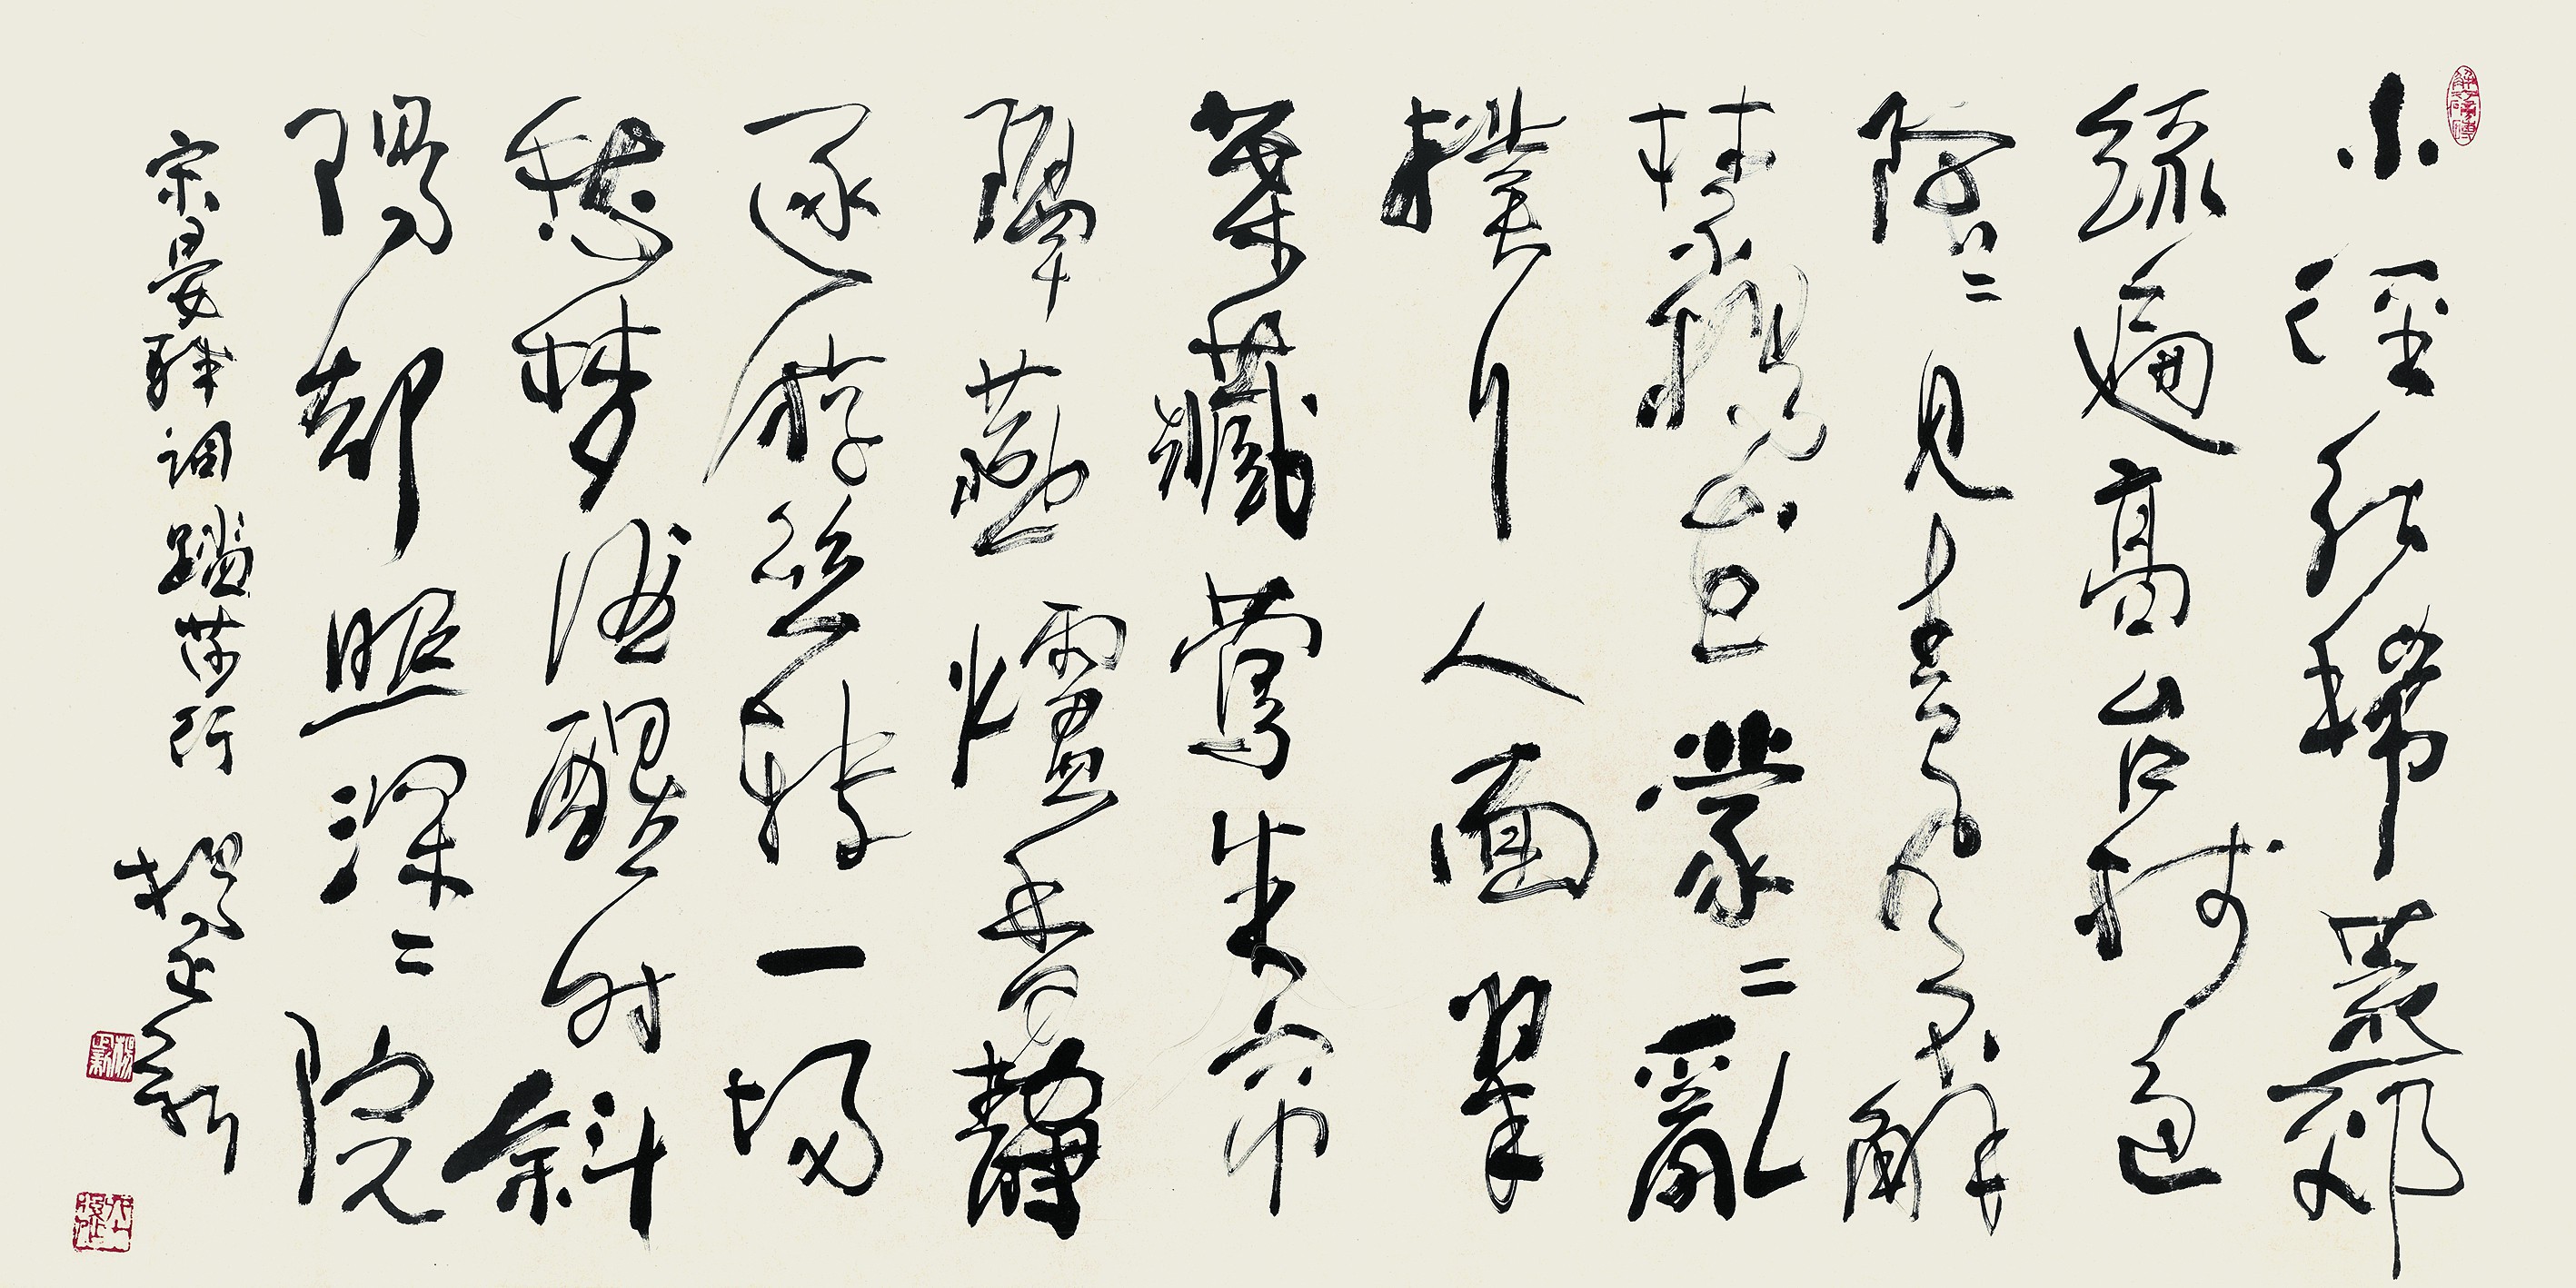 小徑紅稀芳郊
綠遍高台樹色
陰二見春風不解
禁楊花蒙二亂
撲行人面翠
葉藏鶯朱帘
隔燕爐香靜
逐游絲轉一場
愁梦酒醒时斜
陽却照深二院
宋晏殊調踏莎行 楊正新